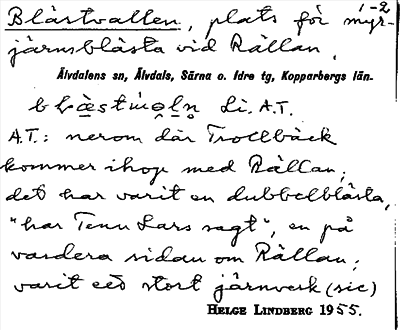 Blästvallen, plats för myr- 1-2
järnsblästa vid Rällan,
Älvdalens sn, Älvdals, Särna o. Idre tg, Kopparbergs län.
Li. A.T.
A.T.: nerom där Trollbäck
kommer ihop med Rällan;
det har varit en dubbelblästa,
"har Tenn Lars sagt", en på
vardera sidan om Rällan;
varit ett stort järnverk (sic)
HELGE LINDBERG 1955.